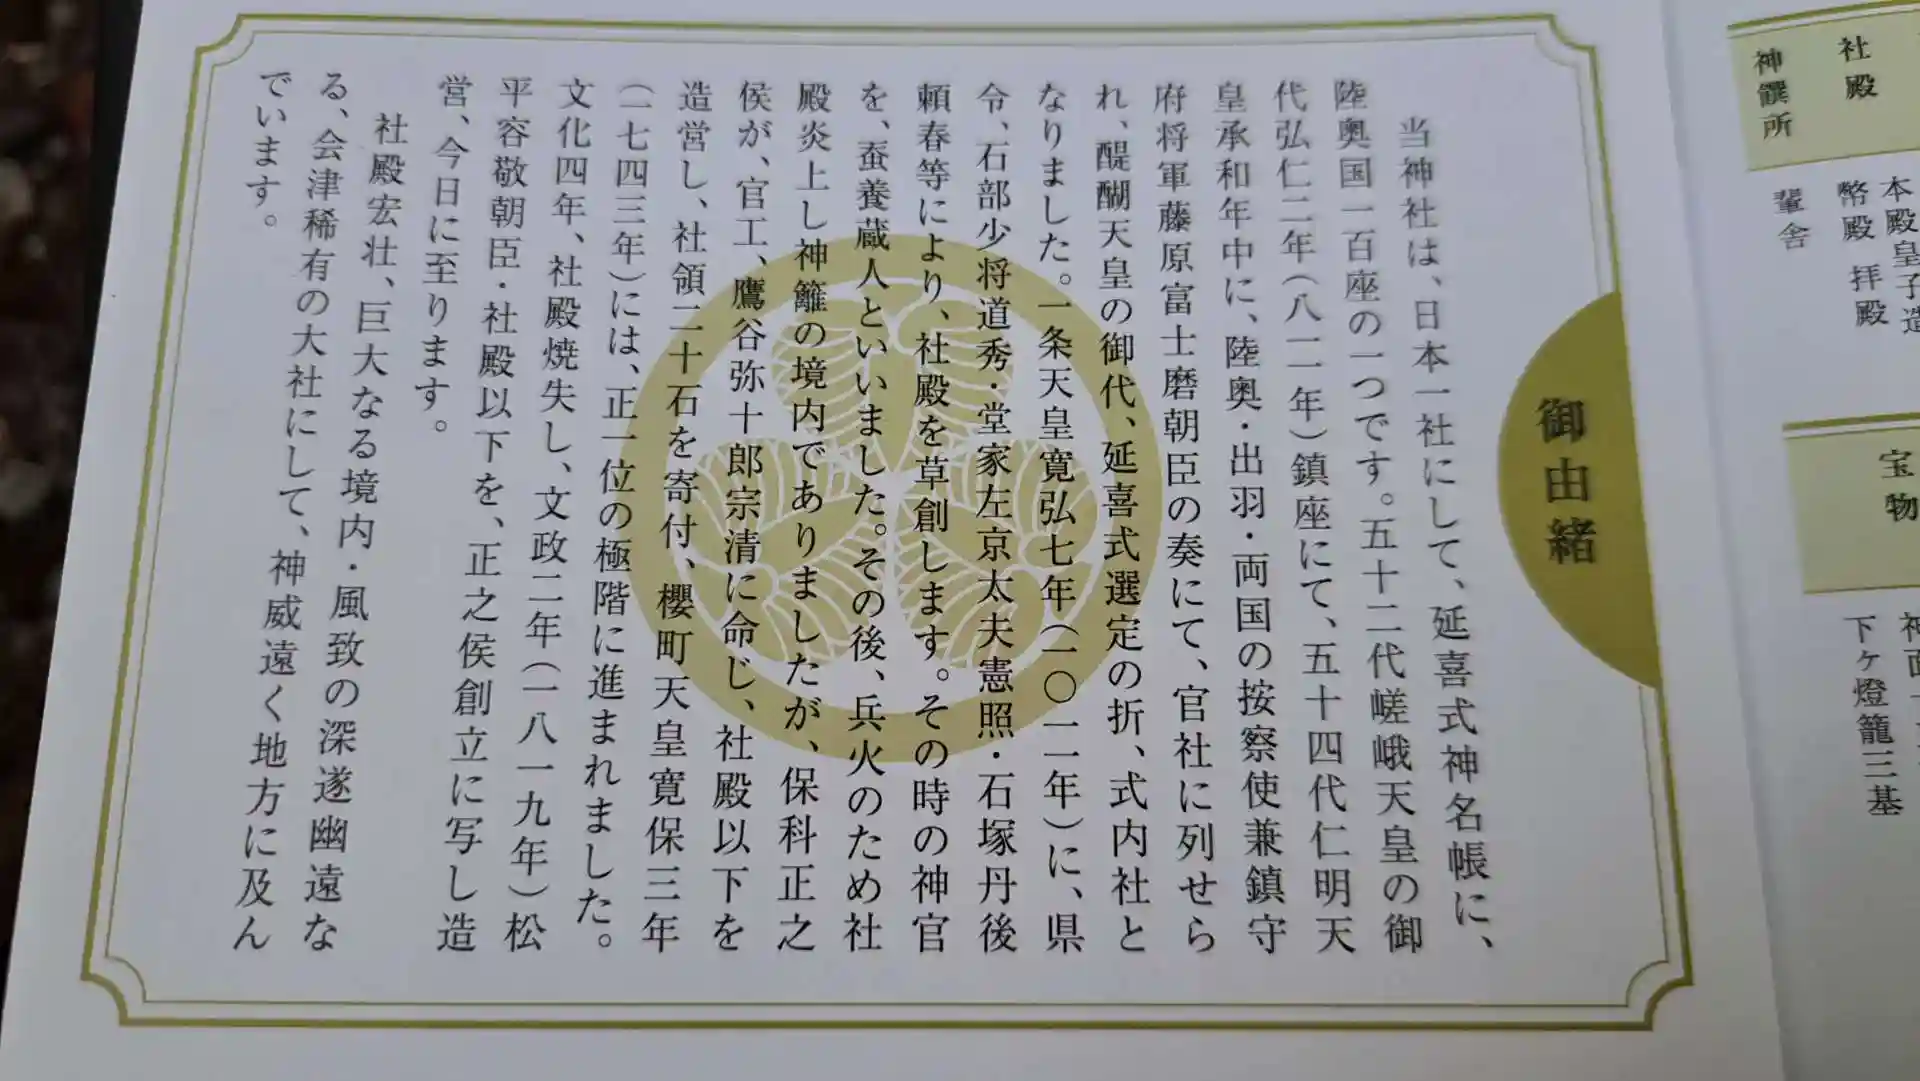 社殿
本殿皇子造
幣殿 拝殿
神饌所
輦舎
宝物
下ヶ燈籠三基
御由緒
当神社は、日本一社にして、延喜式神名帳に、
陸奥国一百座の一つです。五十二代嵯峨天皇の御
代弘仁二年(八一一年)鎮座にて、五十四代仁明天
皇承和年中に、陸奥・出羽・両国の按察使兼鎮守
府将軍藤原富士磨朝臣の奏にて、官社に列せら
れ、醍醐天皇の御代、延喜式選定の折、式内社と
なりました。一条天皇寛弘七年(一〇一一年)に、県
令、石部少将道秀・堂家左京太夫憲照・石塚丹後
頼春等により、社殿を草創します。その時の神官
を、蚕養蔵人といいました。その後、兵火のため社
殿炎上し神籬の境内でありましたが、保科正之
侯が、官工、鷹谷弥十郎宗清に命じ、社殿以下を
造営し、社領二十石を寄付、櫻町天皇寛保三年
(一七四三年)には、正一位の極階に進まれました。
文化四年、社殿焼失し、文政二年(一八一九年)松
平容敬朝臣・社殿以下を、正之侯創立に写し造
営、今日に至ります。
社殿宏壮、巨大なる境内・風致の深遂幽遠な
る、会津稀有の大社にして、神威遠く地方に及ん
でいます。